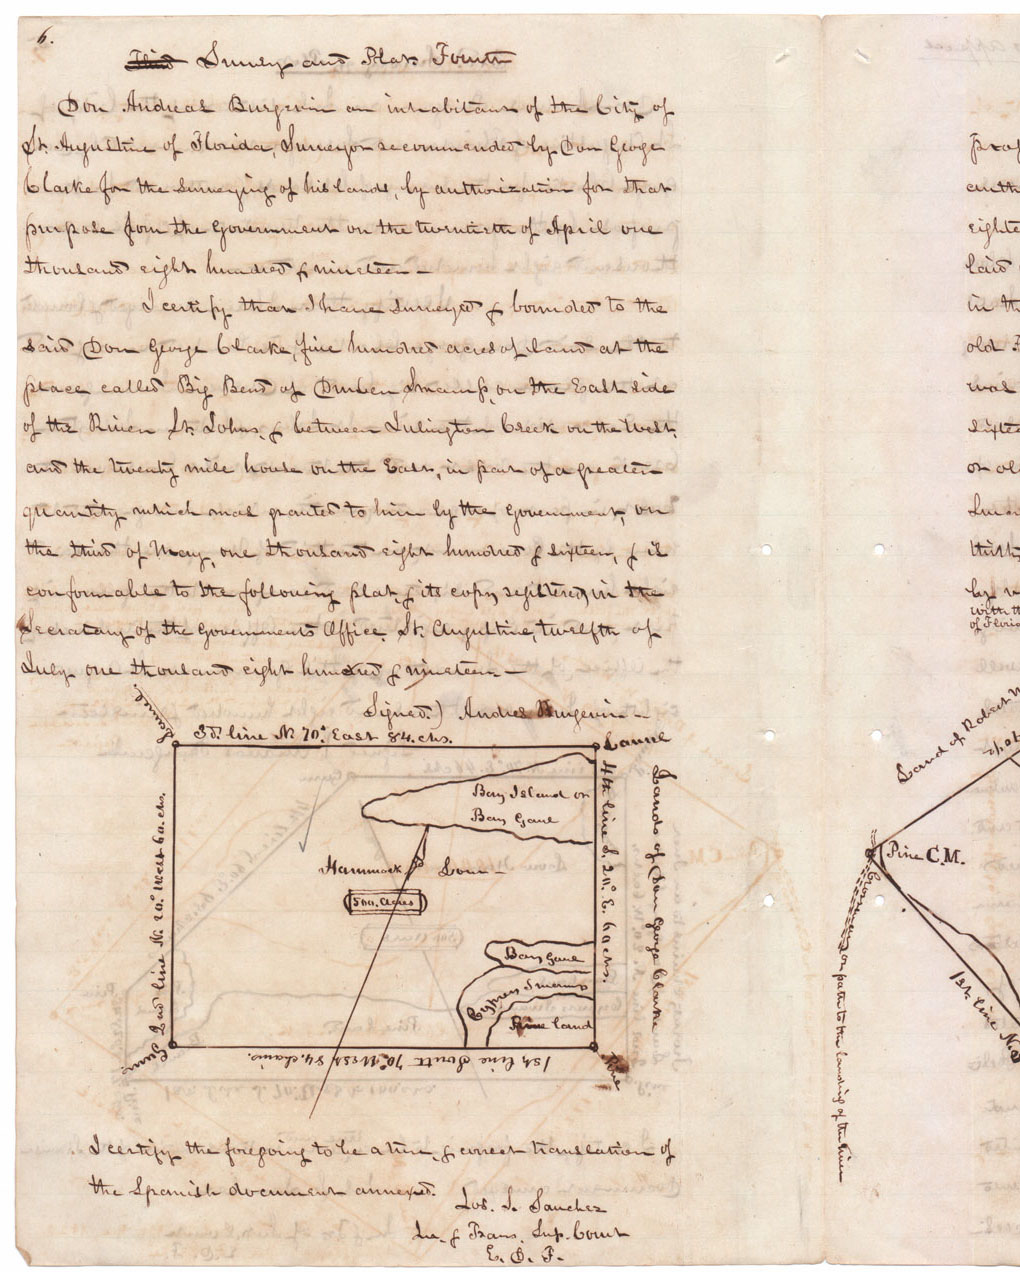 6.
Third Survey and Plat Fourth
Don Andreas Burgevin an inhabitant of the City of
St. Augustine of Florida, Surveyor recommended by Don George
Clarke for the surveying of his lands, by authorization for that
purpose from the Government on the twentieth of April one
thousand eight hundred & nineteen—
I certify that I have surveyed & bounded to the
said Don George Clarke, five hundred acres of land at the
place called Big Bend of Durben Swamp, on the East side
of the River St. Johns, & between Julington Creek on the West,
and the twenty mile house on the East, in part of a greater
quantity which was granted to him by the Government, on
the third of May, one thousand eight hundred & sixteen, & is
conformable to the following plat, & its copy registered in the
Secretary of the Governments Office, St. Augustine, twelfth of
July one thousand eight hundred & nineteen—
Signed.) Andres Burgevin—
Laurel.
3d. line N. 70°. East 84. chs.
Laurel
Bay Island or
Bay Gaul
4th line S. 20°. E. 60 chs.
Lands of Don George Clarke
2nd line N. 20°. West 60. chs.
Hammock Low—
500. Acres
Bay Gaul
Cypress Swamp
Pine land
Gum
1st. line South 70°. West 84. chains.
Pine
I certify the foregoing to be a true, & correct translation of
the Spanish document annexed.
Jos. S. Sanchez
In. & Trans. Sup. Court
E. D. F.
in the
old
was
or old
by
with th
of Florid
Land of Robert
Pine C.M.
1st. line N.
path to the landing of the river